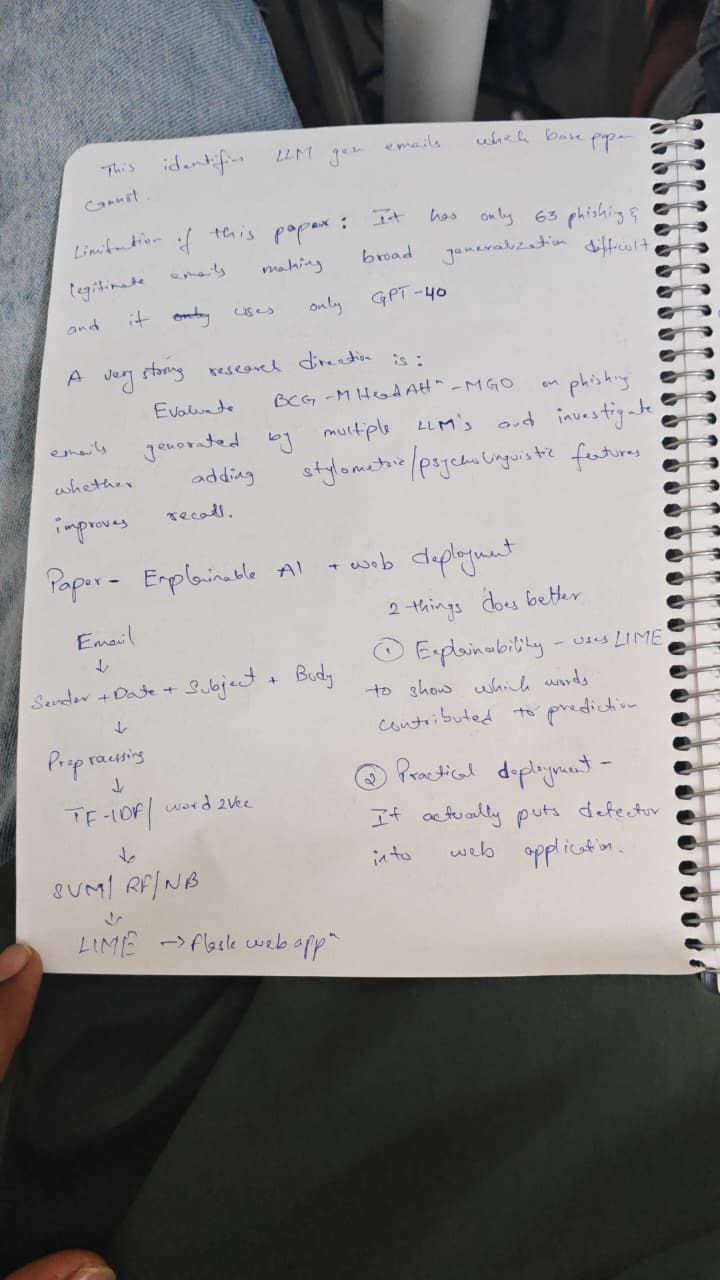 This identifies LLM gen emails which base paper
cannot.
Limitation of this paper: It has only 63 phishing &
legitimate emails making broad generalization difficult
and it only uses only GPT-4o
A very strong research direction is:
Evaluate BCG-MHeadAttⁿ-MGO on phishing
emails generated by multiple LLM's and investigate
whether adding stylometric/psycholinguistic features
improves recall.
Paper - Explainable AI + web deployment
Email
↓
Sender + Date + Subject + Body
↓
Preprocessing
↓
TF-IDF/ word2vec
↓
SVM/ RF/NB
↓
LIME → flask web appⁿ
2 things does better
① Explainability - uses LIME
to show which words
contributed to prediction
② Practical deployment -
It actually puts detector
into web application.